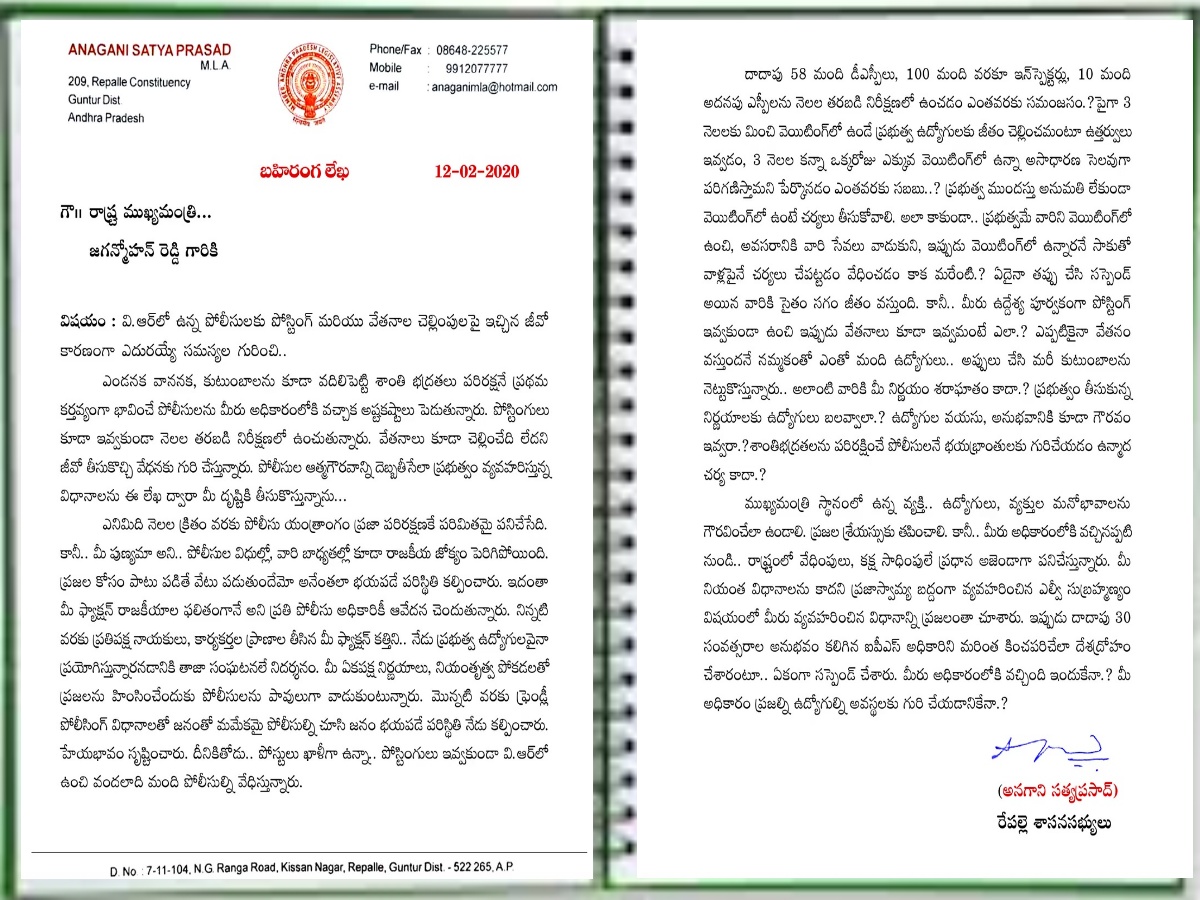 ANAGANI SATYA PRASAD
M.L.A.
209, Repalle Constituency
Guntur Dist.
Andhra Pradesh
Phone/Fax : 08648-225577
Mobile : 9912077777
e-mail : anaganimla@hotmail.com
బహిరంగ లేఖ 12-02-2020
గౌ|| రాష్ట్ర ముఖ్యమంత్రి...
జగన్మోహన్ రెడ్డి గారికి
విషయం : వి.ఆర్‌లో ఉన్న పోలీసులకు పోస్టింగ్ మరియు వేతనాల చెల్లింపులపై ఇచ్చిన జీవో
కారణంగా ఎదురయ్యే సమస్యల గురించి..
ఎండనక వాననక, కుటుంబాలను కూడా వదిలిపెట్టి శాంతి భద్రతలు పరిరక్షనే ప్రథమ
కర్తవ్యంగా భావించే పోలీసులను మీరు అధికారంలోకి వచ్చాక అష్టకష్టాలు పెడుతున్నారు. పోస్టింగులు
కూడా ఇవ్వకుండా నెలల తరబడి నిరీక్షణలో ఉంచుతున్నారు. వేతనాలు కూడా చెల్లించేది లేదని
జీవో తీసుకొచ్చి వేధనకు గురి చేస్తున్నారు. పోలీసుల ఆత్మగౌరవాన్ని దెబ్బతీసేలా ప్రభుత్వం వ్యవహరిస్తున్న
విధానాలను ఈ లేఖ ద్వారా మీ దృష్టికి తీసుకొస్తున్నాను...
ఎనిమిది నెలల క్రితం వరకు పోలీసు యంత్రాంగం ప్రజా పరిరక్షణకే పరిమితమై పనిచేసేది.
కానీ.. మీ పుణ్యమా అని.. పోలీసుల విధుల్లో, వారి బాధ్యతల్లో కూడా రాజకీయ జోక్యం పెరిగిపోయింది.
ప్రజల కోసం పాటు పడితే వేటు పడుతుందేమో అనేంతలా భయపడే పరిస్థితి కల్పించారు. ఇదంతా
మీ ఫ్యాక్షన్ రాజకీయాల ఫలితంగానే అని ప్రతి పోలీసు అధికారికీ ఆవేదన చెందుతున్నారు. నిన్నటి
వరకు ప్రతిపక్ష నాయకులు, కార్యకర్తల ప్రాణాల తీసిన మీ ఫ్యాక్షన్ కత్తిని.. నేడు ప్రభుత్వ ఉద్యోగులపైనా
ప్రయోగిస్తున్నారనడానికి తాజా సంఘటనలే నిదర్శనం. మీ ఏకపక్ష నిర్ణయాలు, నియంతృత్వ పోకడలతో
ప్రజలను హింసించేందుకు పోలీసులను పావులుగా వాడుకుంటున్నారు. మొన్నటి వరకు ఫ్రెండ్లీ
పోలీసింగ్ విధానాలతో జనంతో మమేకమై పోలీసుల్ని చూసి జనం భయపడే పరిస్థితి నేడు కల్పించారు.
హేయభావం సృష్టించారు. దీనికితోడు.. పోస్టులు ఖాళీగా ఉన్నా.. పోస్టింగులు ఇవ్వకుండా వి.ఆర్‌లో
ఉంచి వందలాది మంది పోలీసుల్ని వేధిస్తున్నారు.
D. No : 7-11-104, N.G. Ranga Road, Kissan Nagar, Repalle, Guntur Dist. - 522 265, A.P.
దాదాపు 58 మంది డీఎస్పీలు, 100 మంది వరకూ ఇన్‌స్పెక్టర్లు, 10 మంది
అదనపు ఎస్పీలను నెలల తరబడి నిరీక్షణలో ఉంచడం ఎంతవరకు సమంజసం.?పైగా 3
నెలలకు మించి వెయిటింగ్‌లో ఉండే ప్రభుత్వ ఉద్యోగులకు జీతం చెల్లించమంటూ ఉత్తర్వులు
ఇవ్వడం, 3 నెలల కన్నా ఒక్కరోజు ఎక్కువ వెయిటింగ్‌లో ఉన్నా అసాధారణ సెలవుగా
పరిగణిస్తామని పేర్కొనడం ఎంతవరకు సబబు..? ప్రభుత్వ ముందస్తు అనుమతి లేకుండా
వెయిటింగ్‌లో ఉంటే చర్యలు తీసుకోవాలి. అలా కాకుండా.. ప్రభుత్వమే వారిని వెయిటింగ్‌లో
ఉంచి, అవసరానికి వారి సేవలు వాడుకుని, ఇప్పుడు వెయిటింగ్‌లో ఉన్నారనే సాకుతో
వాళ్లపైనే చర్యలు చేపట్టడం వేధించడం కాక మరేంటి.? ఏదైనా తప్పు చేసి సస్పెండ్
అయిన వారికి సైతం సగం జీతం వస్తుంది. కానీ.. మీరు ఉద్దేశ్య పూర్వకంగా పోస్టింగ్
ఇవ్వకుండా ఉంచి ఇప్పుడు వేతనాలు కూడా ఇవ్వమంటే ఎలా.? ఎప్పటికైనా వేతనం
వస్తుందనే నమ్మకంతో ఎంతో మంది ఉద్యోగులు.. అప్పులు చేసి మరీ కుటుంబాలను
నెట్టుకొస్తున్నారు.. అలాంటి వారికి మీ నిర్ణయం శరాఘాతం కాదా.? ప్రభుత్వం తీసుకున్న
నిర్ణయాలకు ఉద్యోగులు బలవ్వాలా.? ఉద్యోగుల వయసు, అనుభవానికి కూడా గౌరవం
ఇవ్వరా.?శాంతిభద్రతలను పరిరక్షించే పోలీసులనే భయభ్రాంతులకు గురిచేయడం ఉన్మాద
చర్య కాదా.?
ముఖ్యమంత్రి స్థానంలో ఉన్న వ్యక్తి.. ఉద్యోగులు, వ్యక్తుల మనోభావాలను
గౌరవించేలా ఉండాలి. ప్రజల శ్రేయస్సుకు తపించాలి. కానీ.. మీరు అధికారంలోకి వచ్చినప్పటి
నుండి.. రాష్ట్రంలో వేధింపులు, కక్ష సాధింపులే ప్రధాన అజెండాగా పనిచేస్తున్నారు. మీ
నియంత విధానాలను కాదని ప్రజాస్వామ్య బద్దంగా వ్యవహరించిన ఎల్వీ సుబ్రహ్మణ్యం
విషయంలో మీరు వ్యవహరించిన విధానాన్ని ప్రజలంతా చూశారు. ఇప్పుడు దాదాపు 30
సంవత్సరాల అనుభవం కలిగిన ఐపీఎస్ అధికారిని మరింత కించపరిచేలా దేశద్రోహం
చేశారంటూ.. ఏకంగా సస్పెండ్ చేశారు. మీరు అధికారంలోకి వచ్చింది ఇందుకేనా.? మీ
అధికారం ప్రజల్ని ఉద్యోగుల్ని అవస్థలకు గురి చేయడానికేనా.?
(అనగాని సత్యప్రసాద్)
రేపల్లె శాసనసభ్యులు